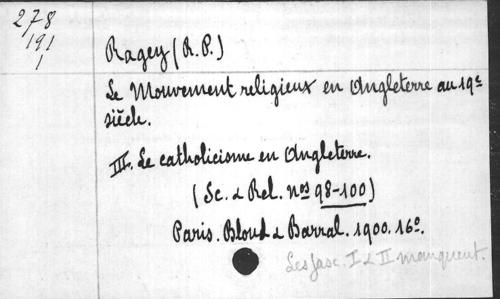 278
191
1
Ragey (R.P.)
Le Mouvement religieux en Angleterre au 19e
siècle.
III. Le catholicisme en Angleterre.
(Sc. & Rel. nos 98-100)
Paris. Bloud & Barral. 1900. 16o.
Les fasc. I & II manquent.